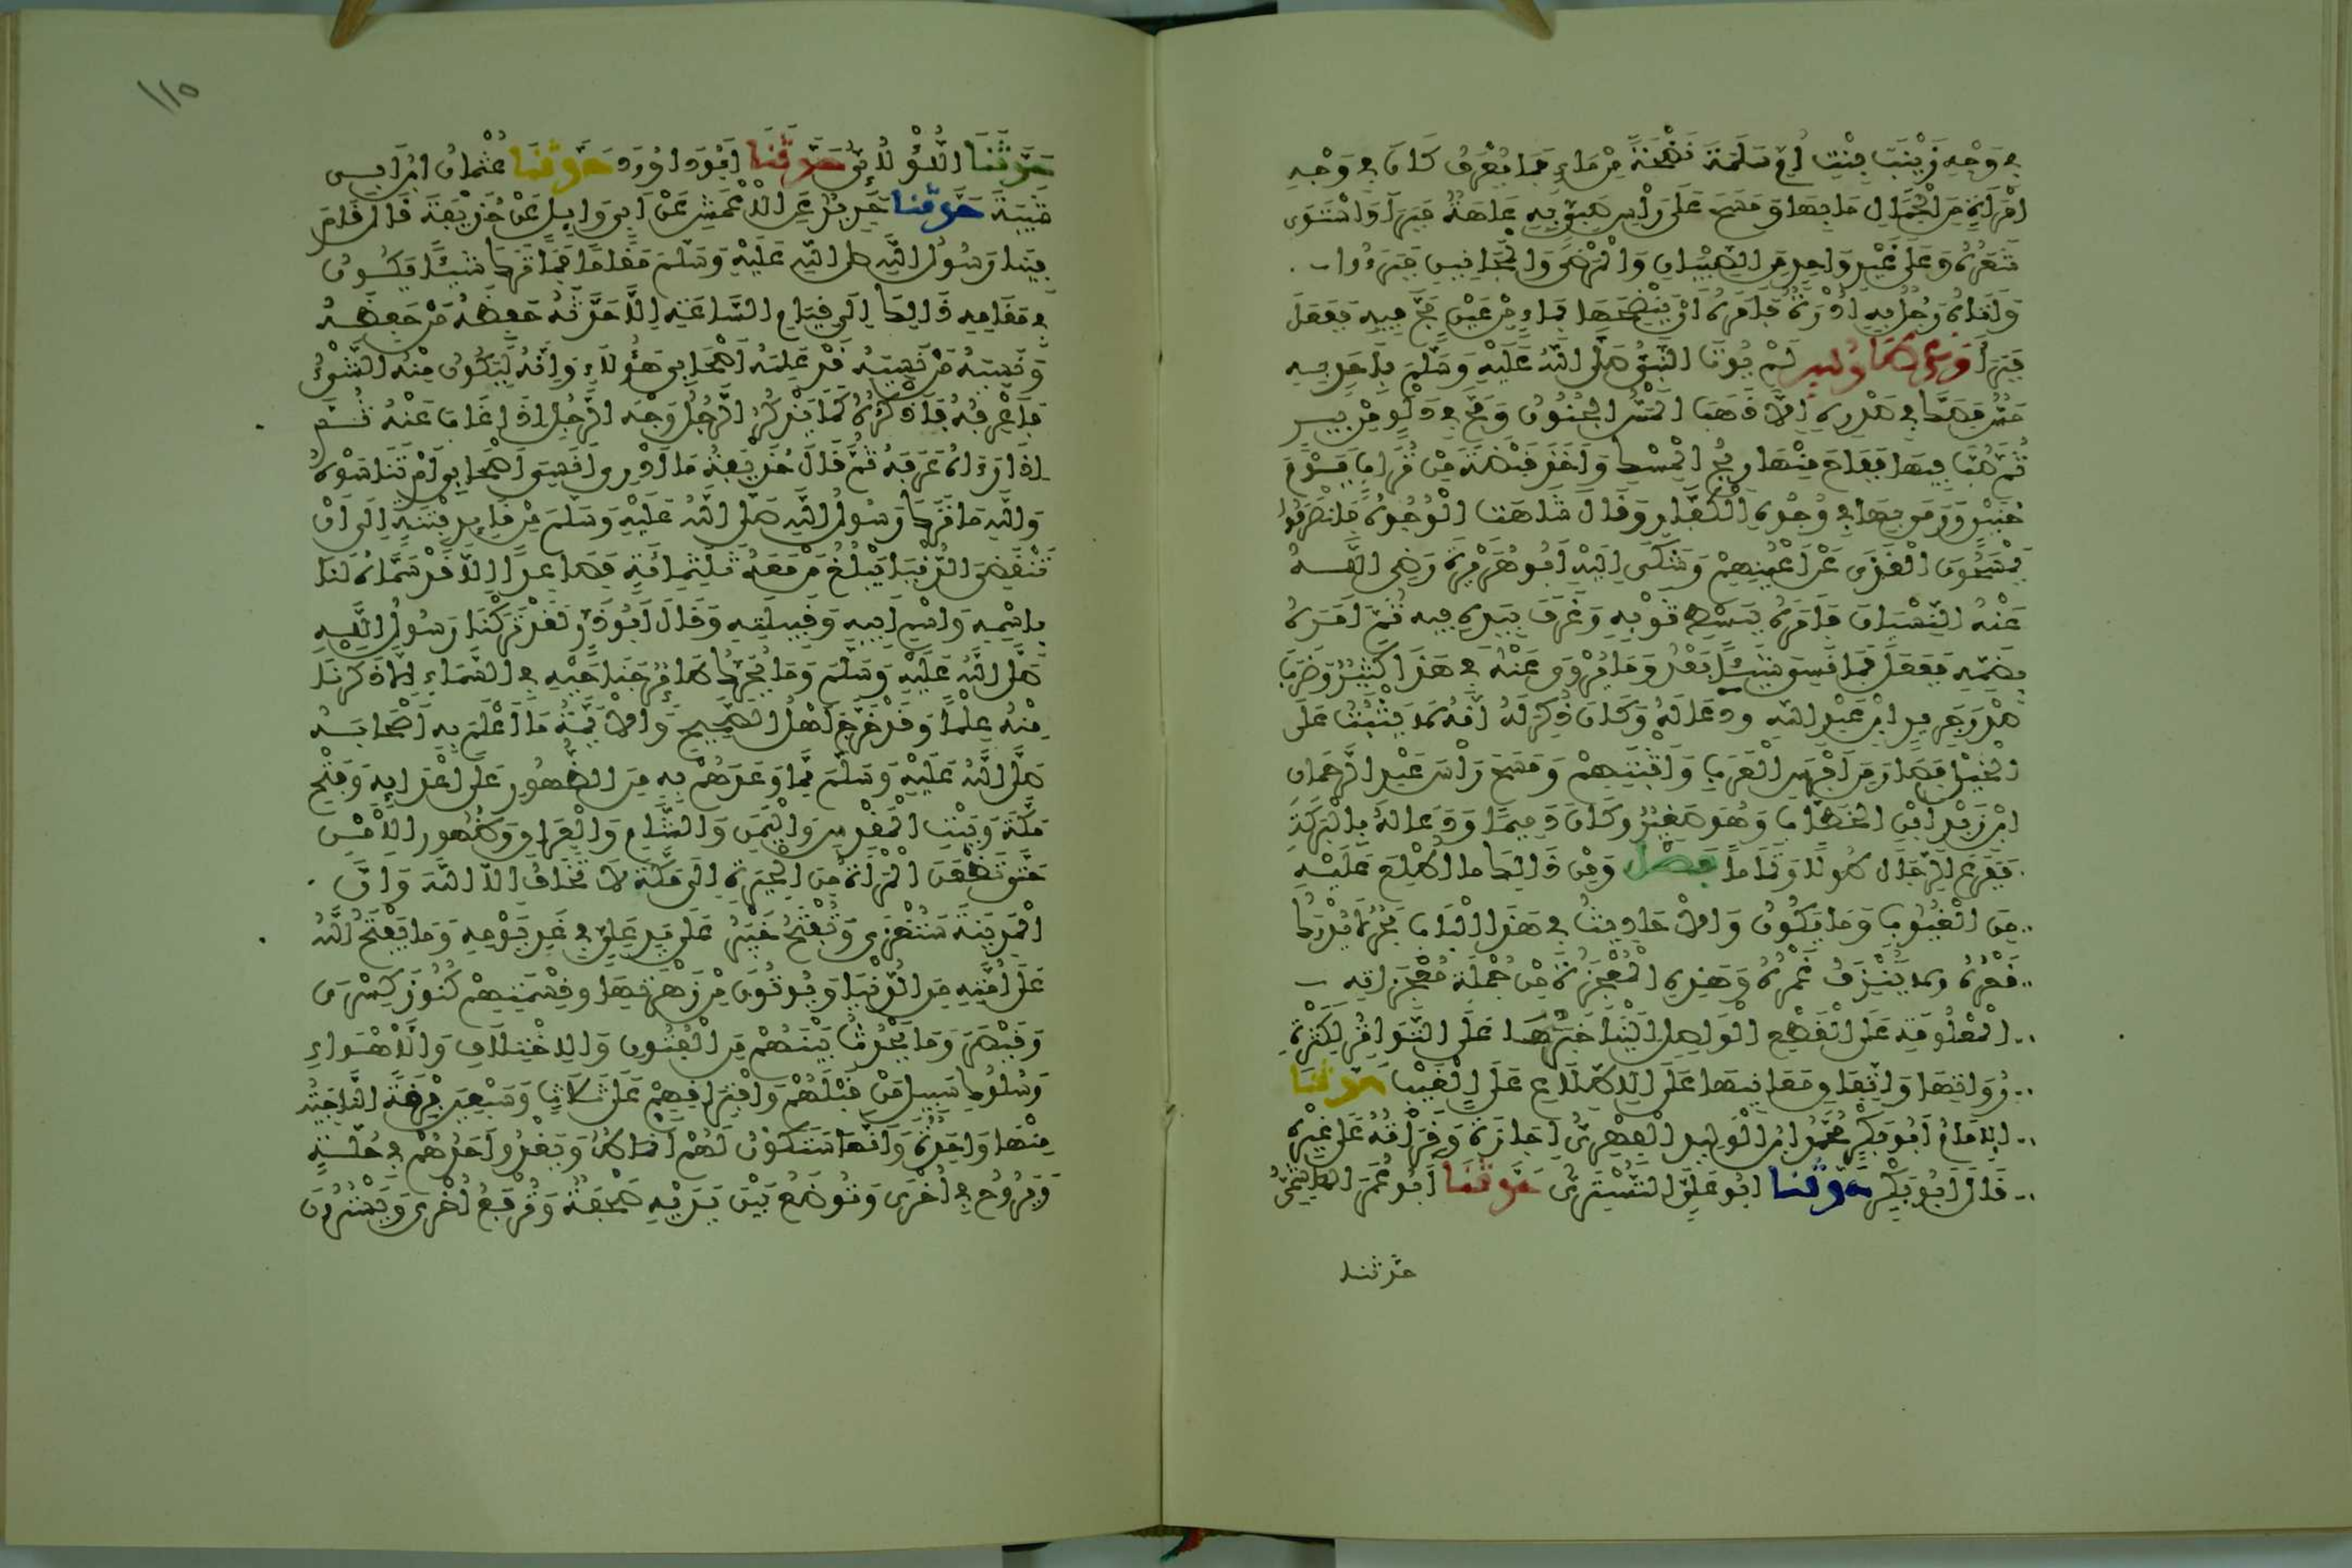 في وَجْهِ زَيْنَبَ بِنْتِ أُمِّ سَلَمَةَ نَضْحَةً مِنْ مَاءٍ فَمَا يُعْرَفُ كَانَ في وَجْهِ
امْرَأَةٍ مِنَ الْجَمَالِ مَا بِهَا وَمَسَحَ عَلَى رَأْسِ صَبِيٍّ بِهِ عَاهَةٌ فَبَرَأَ وَاسْتَوَى
شَعَرُهُ وَعَلَى غَيْرِ وَاحِدٍ مِنَ الصِّبْيَانِ وَالْمَرْضَى وَالْمَجَانِينِ فَبَرَءُوا
وَأَتَاهُ رَجُلٌ بِهِ أُدْرَةٌ فَأَمَرَهُ أَنْ يَنْضَحَهَا بِمَاءٍ مِنْ عَيْنٍ مَجَّ فِيهِ فَفَعَلَ
فَبَرَأَ وعن طاوس لَمْ يُؤْتَ النَّبِيُّ صَلَّى اللَّهُ عَلَيْهِ وَسَلَّمَ بِأَحَدٍ بِهِ
مَسٌّ فَصَكَّ في صَدْرِهِ إِلَّا ذَهَبَ الْمَسُّ الْجُنُونُ وَمَجَّ في دَلْوٍ مِنْ بِيرٍ
ثُمَّ صَبَّ فِيهَا فَفَاحَ مِنْهَا رِيحُ الْمِسْكِ وَأَخَذَ قَبْضَةً مِنْ تُرَابٍ يَوْمَ
حُنَيْنٍ وَرَمَى بِهَا في وُجُوهِ الْكُفَّارِ وَقَالَ شَاهَتِ الْوُجُوهُ فَانْصَرَفُوا
يَمْسَحُونَ الْقَذَى عَنْ أَعْيُنِهِمْ وَشَكَى إِلَيْهِ أَبُو هُرَيْرَةَ رَضِيَ اللَّهُ
عَنْهُ النِّسْيَانَ فَأَمَرَهُ بِبَسْطِ ثَوْبِهِ وَغَرَفَ بِيَدِهِ فِيهِ ثُمَّ أَمَرَهُ
بِضَمِّهِ فَفَعَلَ فَمَا نَسِيَ شَيْئًا بَعْدُ وَمَا يُرْوَى عَنْهُ في هَذَا كَثِيرٌ وَضَرَبَ
صَدْرَ جَرِيرِ ابْنِ عَبْدِ اللَّهِ وَدَعَا لَهُ وَكَانَ ذُكِرَ لَهُ أَنَّهُ لَا يَثْبُتُ عَلَى
الْخَيْلِ فَصَارَ مِنْ أَفْرَسِ الْعَرَبِ وَأَثْبَتِهِمْ وَمَسَحَ رَأْسَ عَبْدِ الرَّحْمَانِ
ابْنِ زَيْدِ ابْنِ الْخَطَّابِ وَهُوَ صَغِيرٌ وَكَانَ دَمِيمًا وَدَعَا لَهُ بِالْبَرَكَةِ
فَفَرَعَ الرِّجَالَ طُولًا وَتَمَامًا فصل وَمِنْ ذَالِكَ مَا اطُّلِعَ عَلَيْهِ
مِنَ الْغُيُوبِ وَمَا يَكُونُ وَالْأَحَادِيثُ في هَذَا الْبَابِ بَحْرٌ لَا يُدْرَكُ
قَعْرُهُ وَلَا يُنْزَفُ غَمْرُهُ وَهَذِهِ الْمُعْجِزَةُ مِنْ جُمْلَةِ مُعْجِزَاتِهِ
الْمَعْلُومَةِ عَلَى الْقَطْعِ الْوَاصِلِ إِلَيْنَا خَبَرُهَا عَلَى التَّوَاتُرِ لِكَثْرَةِ
رُوَاتِهَا وَاتِّفَاقِ مَعَانِيهَا عَلَى الِاطِّلَاعِ عَلَى الْغَيْبِ حَدَّثَنَا
الْإِمَامُ أَبُو بَكْرٍ مُحَمَّدُ ابْنُ الْوَلِيدِ الْفِهْرِيُّ إِجَازَةً وَقَرَأْتُهُ عَلَى غَيْرِهِ
قَالَ أَبُو بَكْرٍ حَدَّثَنَا أَبُو عَلِيٍّ التُّسْتَرِيُّ حَدَّثَنَا أَبُو عُمَرَ الْهَاشِمِيُّ
حدثنا
١١٥
حَدَّثَنَا اللُّؤْلُؤِيُّ حَدَّثَنَا أَبُو دَاوُودَ حَدَّثَنَا عُثْمَانُ ابْنُ أَبِي
شَيْبَةَ حَدَّثَنَا جَرِيرٌ عَنِ الْأَعْمَشِ عَنْ أَبِي وَايِلٍ عَنْ حُذَيْفَةَ قَالَ قَامَ
فِينَا رَسُولُ اللَّهِ صلى اللَّه عَلَيْهِ وَسَلَّمَ مَقَامًا فَمَا تَرَكَ شَيْئًا يَكُونُ
في مَقَامِهِ ذَالِكَ إِلَى قِيَامِ السَّاعَةِ إِلَّا حَدَّثَهُ حَفِظَهُ مَنْ حَفِظَهُ
وَنَسِيَهُ مَنْ نَسِيَهُ قَدْ عَلِمَهُ أَصْحَابِي هَؤُلَاءِ وَإِنَّهُ لَيَكُونُ مِنْهُ الشَّيْءُ
فَأَعْرِفُهُ فَأَذْكُرُهُ كَمَا يَذْكُرُ الرَّجُلُ وَجْهَ الرَّجُلِ إِذَا غَابَ عَنْهُ ثُمَّ
إِذَا رَءَاهُ عَرَفَهُ ثُمَّ قَالَ حُذَيْفَةُ مَا أَدْرِي أَنَسِيَ أَصْحَابِي أَمْ تَنَاسَوْهُ
وَاللَّهِ مَا تَرَكَ رَسُولُ اللَّهِ صَلَّى اللَّهُ عَلَيْهِ وَسَلَّمَ مِنْ قَايِدِ فِتْنَةٍ إِلَى أَنْ
تَنْقَضِيَ الدُّنْيَا يَبْلُغُ مَنْ مَعَهُ ثَلَثَمِائَةٍ فَصَاعِدًا إِلَّا قَدْ سَمَّاهُ لَنَا
بِاسْمِهِ وَاسْمِ أَبِيهِ وَقَبِيلَتِهِ وَقَالَ أَبُو ذَرٍّ لَقَدْ تَرَكَنَا رَسُولُ اللَّهِ
صَلَّى اللَّهُ عَلَيْهِ وَسَلَّمَ وَمَا يُحَرِّكُ طَائِرٌ جَنَاحَيْهِ في السَّمَاءِ إِلَّا ذَكَرَنَا
مِنْهُ عِلْمًا وَقَدْ خَرَّجَ أَهْلُ الصَّحِيحِ وَالْأَئِمَّةُ مَا أَعْلَمَ بِهِ أَصْحَابَهُ
صَلَّى اللَّهُ عَلَيْهِ وَسَلَّمَ مِمَّا وَعَدَهُمْ بِهِ مِنَ الظُّهُورِ عَلَى أَعْدَايِهِ وَفَتْحِ
مَكَّةَ وَبَيْتِ الْمَقْدِسِ وَالْيَمَنِ وَالشَّامِ وَالْعِرَاقِ وَظُهُورِ الْأَمْنِ
حَتَّى تَظْعَنَ الْمَرْأَةُ مِنَ الْحِيرَةِ إِلَى مَكَّةَ لَا تَخَافُ إِلَّا اللَّهَ وَأَنَّ
الْمَدِينَةَ سَتُغْزَى وَتُفْتَحُ خَيْبَرُ عَلَى يَدِ عَلِيٍّ في غَدِ يَوْمِهِ وَمَا يَفْتَحُ اللَّهُ
عَلَى أُمَّتِهِ مِنَ الدُّنْيَا وَيُؤْتَوْنَ مِنْ زَهْرَتِهَا وَقِسْمَتِهِمْ كُنُوزَ كِسْرَى
وَقَيْصَرَ وَمَا يَحْدُثُ بَيْنَهُمْ مِنَ الْفُتُونِ وَالِاخْتِلَافِ وَالْأَهْوَاءِ
وَسُلُوكِ سَبِيلِ مَنْ قَبْلَهُمْ وَافْتِرَاقِهِمْ عَلَى ثَلَاثٍ وَسَبْعِينَ فِرْقَةً النَّاجِيَةُ
مِنْهَا وَاحِدَةٌ وَأَنَّهَا سَتَكُونُ لَهُمْ أَنْمَاطٌ وَيَغْدُو أَحَدُهُمْ في حُلَّةٍ
وَيَرُوحُ في أُخْرَى وَتُوضَعُ بَيْنَ يَدَيْهِ صَحْفَةٌ وَتُرْفَعُ أُخْرَى وَيَسْتُرُونَ